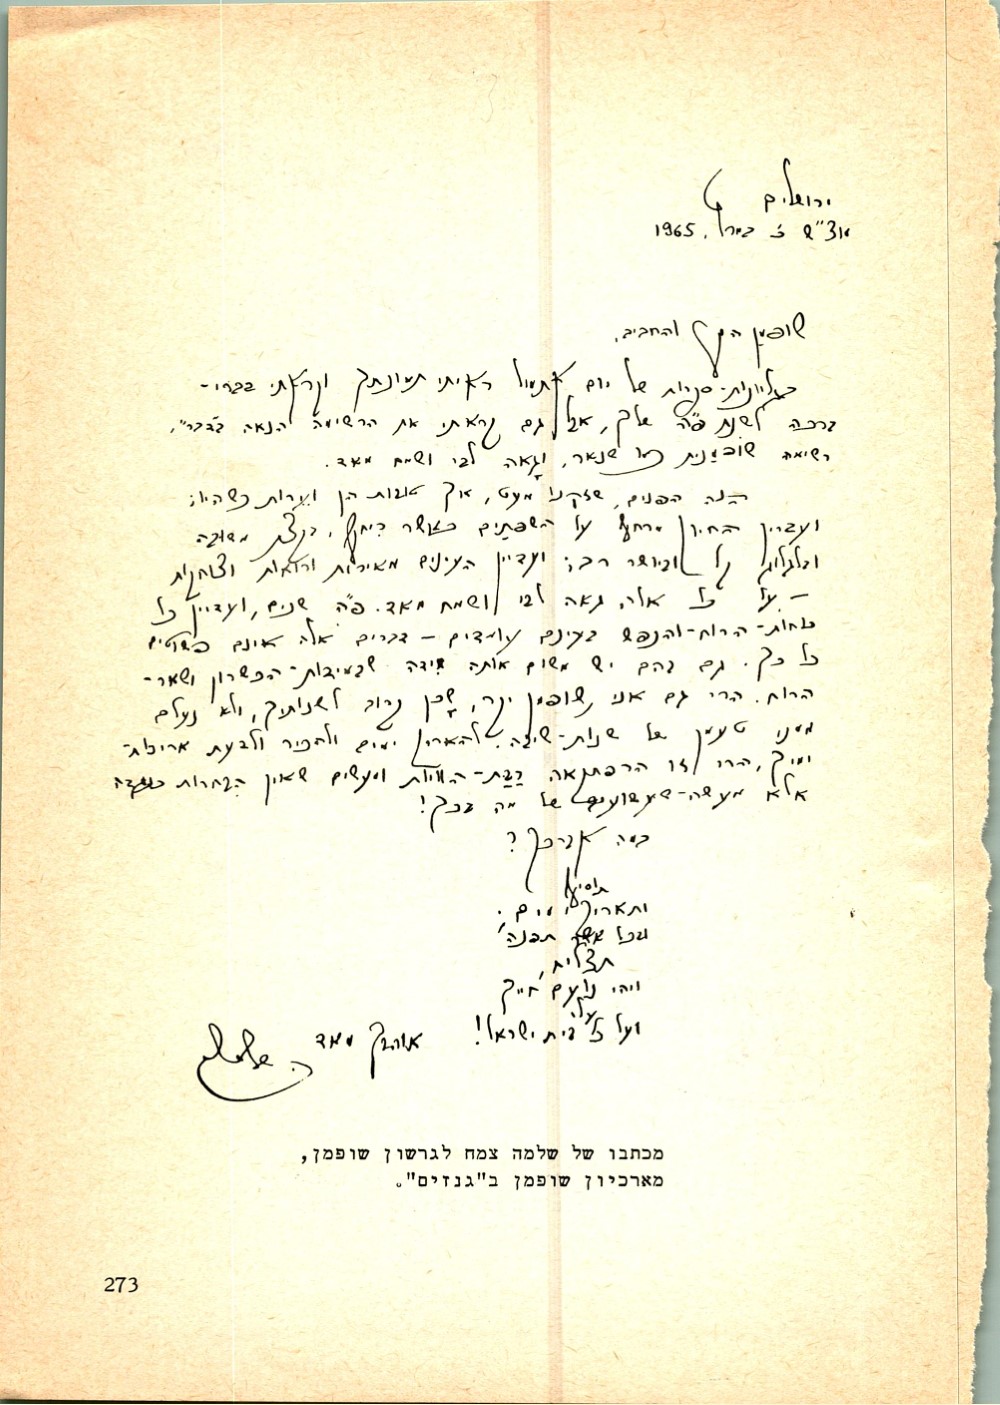 ירושלים
מוצ"ש 1965.
שופמן היקר והחביב,
בגליונות-ספרות של יום אתמול ראיתי תמונתך וקראתי בברכי-
ברכה לשנת פ"ה שלך, אבל גם קראתי את הרשימה הנאה בדבר",
רשימה שופמנית שנאר, וגאה לבי ושמח מאד.
הנה הפנים, שזקנו מעט, אך טובות הן וערות כשהיו;
ועדיין החיוך מרחף על השפתים כאשר
רב; ועדיין העינים מאירות ורואות וצוחקות
– על כל אלה גאה לבי ושמח מאד. פ"ה שנים, ועדיין כל
כוחות-הרוח-והנפש בעינם עומדים – דברים אלה אינם פשוטים
כל כך. גם בהם יש משום אותה מידה שבמידות-הכשרון ושאר-
הרוח. הרי גם אני, שופמן יקר, שכן קרוב לשנותיך, ולא נעלם
ממני טעמן של שנות-שיבה. להאריך ימים ולהכיר ולדעת אריכות-
ימיך, הרי זו הרפתקאה רבת-הוויות ומעשים שאין הבחרות כנגדה
אלא מעשה-שעשועים של מה בכך!
במה אברכך?
תוסיף
ותאריך ימים.
ובכל אשר תפנה,
תצליח,
ויהי נועם חייך
עליך
ועל כל בית ישראל!
אוהבך מאד
ש. צמח
מכתבו של שלמה צמח לגרשון שופמן,
מארכיון שופמן ב"גנזים".
273